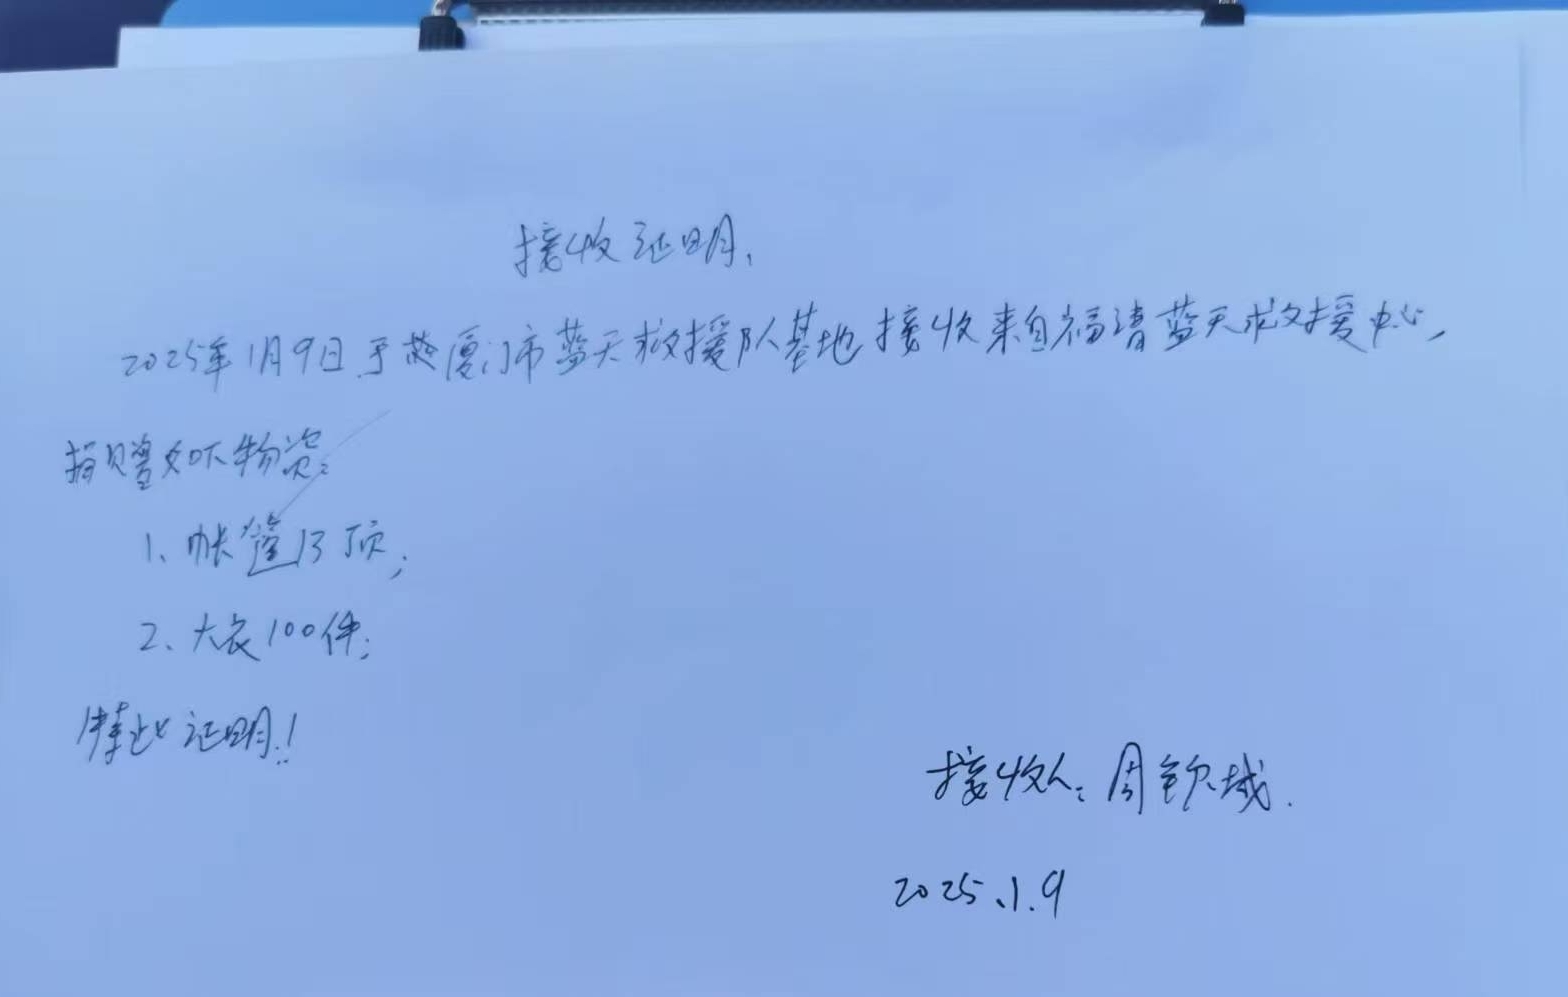 接收证明、
2025年1月9日于厦门市蓝天救援队基地接收来自福清蓝天救援中心,
捐赠如下物资:
1、帐篷13顶;
2、大衣100件;
特此证明!
接收人:周钦城.
2025.1.9